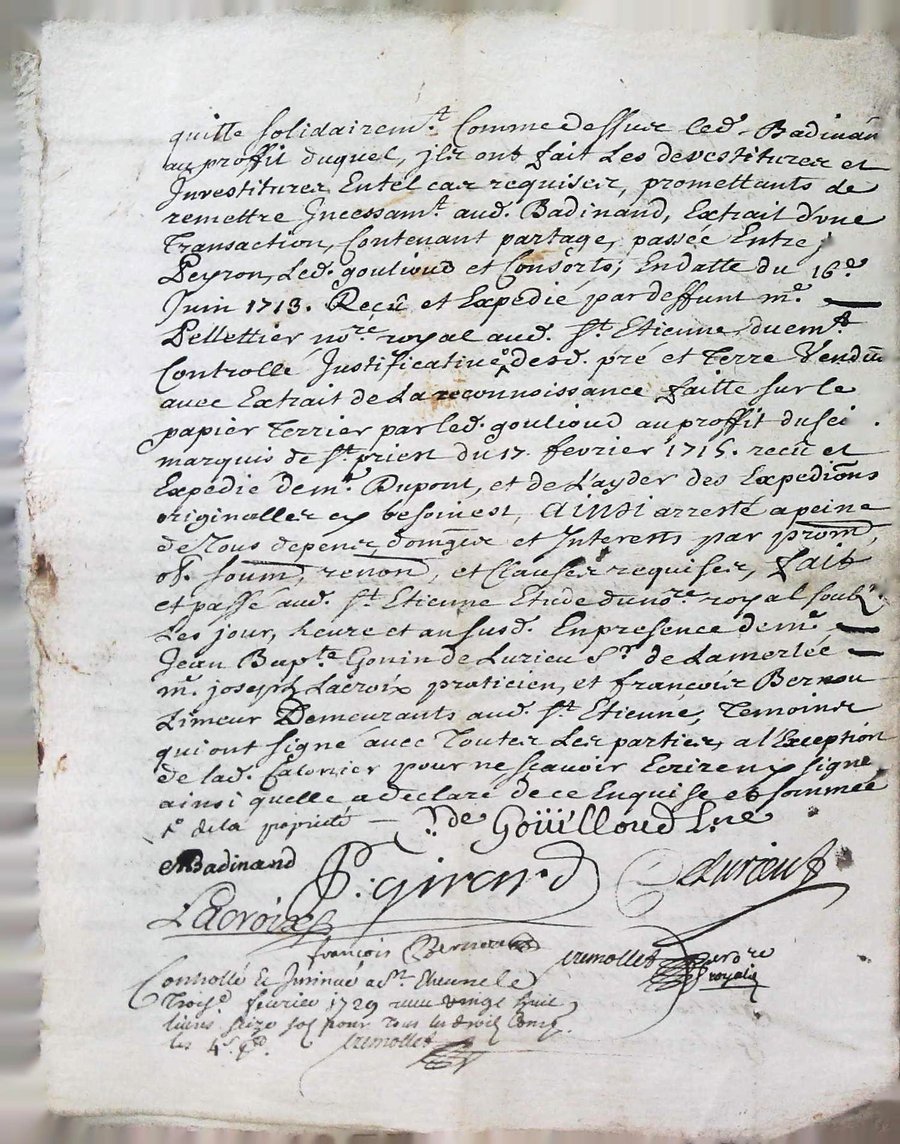 quitte solidairem.t Comme dessus led. Badinand
au proffit duquel, jls ont fait Les devestitures et
Jnvestitures En tel cas requises, promettants de
remettre Jncessam.t aud. Badinand, Extrait d'vne
Transaction, Contenant partage, passée Entre,
Peyron, Led. goulioud et Consorts, En datte du 16.e
Juin 1713. Reçû et Expedié par deffunt m.e
Pellettier no.re royal aud. S.t Etienne, duem.t
Controllé Justificative desd. pré et Terre Vendu
avec Extrait de La reconnoissance faitte sur le
papier Terrier par led. goulioud au proffit du sei
marquis de S.t priest du 17. fevrier 1715. recû et
Expedié de m.e Dupont, et de L'ayder des Expedi͠ons
originalles sy besoin est, Ainsi arresté a peine
de Tous depens, dom̃ges et Interests par prom̃,
ob. soum̃, renon̄, et Clauses requises, fait
et passé aud. S.t Etienne Etude du no.re royal soub.e
Les jour, heure et an susd. En presence de m.e
Jean Bap.te Gonin de Lurieu S.r de Lamerlée
m.e joseph Lacroix praticien, et francois Bernou
Limeur Demeurants aud. S.t Etienne, Temoins
qui ont signé avec Toutes Les parties, a l'Exception
de lad. pour ne scavoir Ecrire ny signé
ainsi quelle a declaré de ce Enquise et sommée
de la proprieté de Goüilloud
Badinand P. girard Delurieu
LaCroix
françois
Controllé & Jnsinué a S.t Etienne le
Trois.e fevrier 1729 receu vingt huit
livres seize sols pour Tous les droits
les 4.s